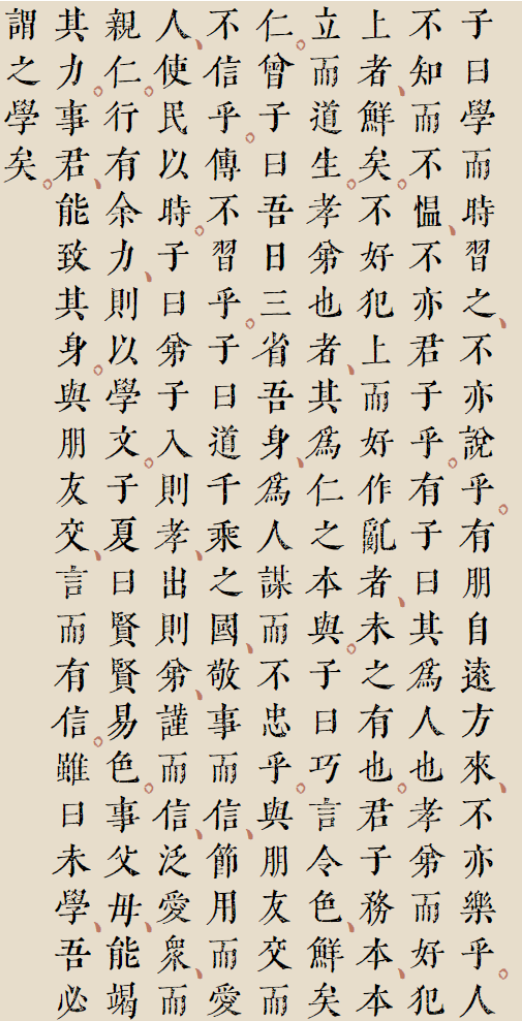 子曰學而時習之、不亦說乎。有朋自遠方來、不亦樂乎。人
不知而不愠、不亦君子乎。有子曰其爲人也孝弟而好犯
上者、鮮矣。不好犯上而好作亂者、未之有也。君子務本、本
立而道生。孝弟也者、其爲仁之本與。子曰巧言令色、鮮矣
仁。曾子曰吾日三省吾身、爲人謀而不忠乎。與朋友交而
不信乎。傳不習乎。子曰道千乘之國、敬事而信、節用而愛
人、使民以時。子曰弟子入則孝、出則弟、謹而信、泛愛衆、而
親仁。行有余力、則以學文。子夏曰賢賢易色。事父母、能竭
其力。事君、能致其身。與朋友交、言而有信。雖曰未學、吾必
謂之學矣。